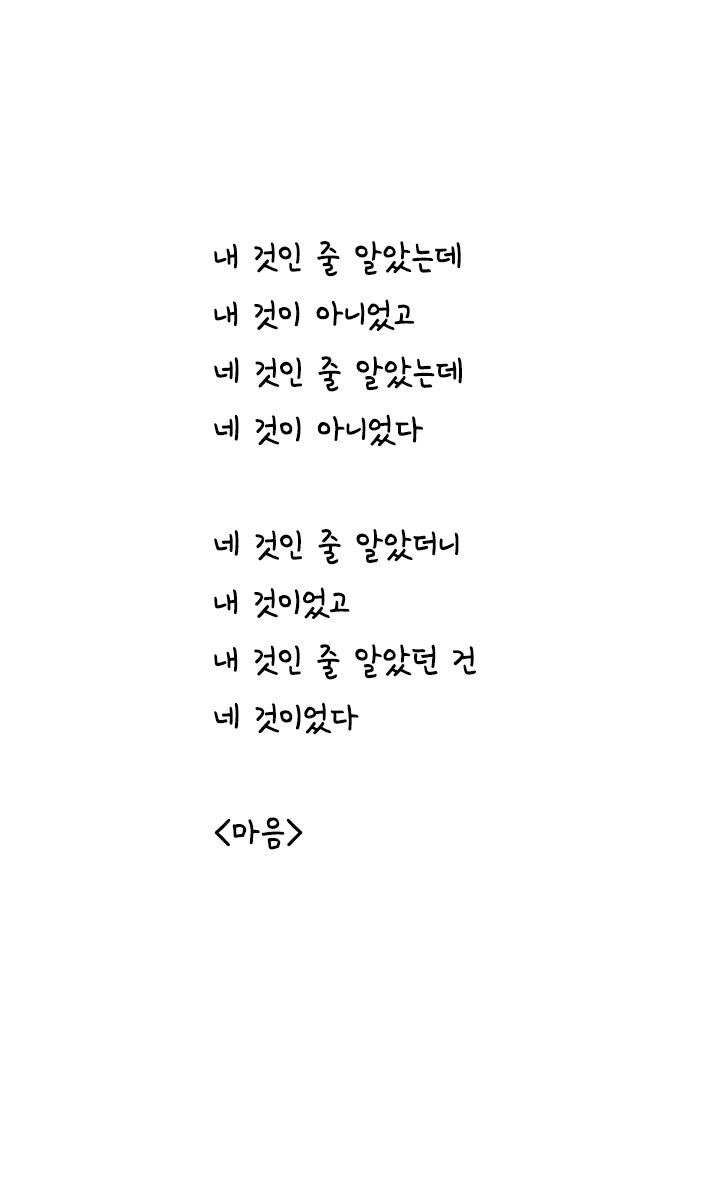 내 것인 줄 알았는데
내 것이 아니었고
네 것인 줄 알았는데
네 것이 아니었다
네 것인 줄 알았더니
내 것이었고
내 것인 줄 알았던 건
네 것이었다
<마음>